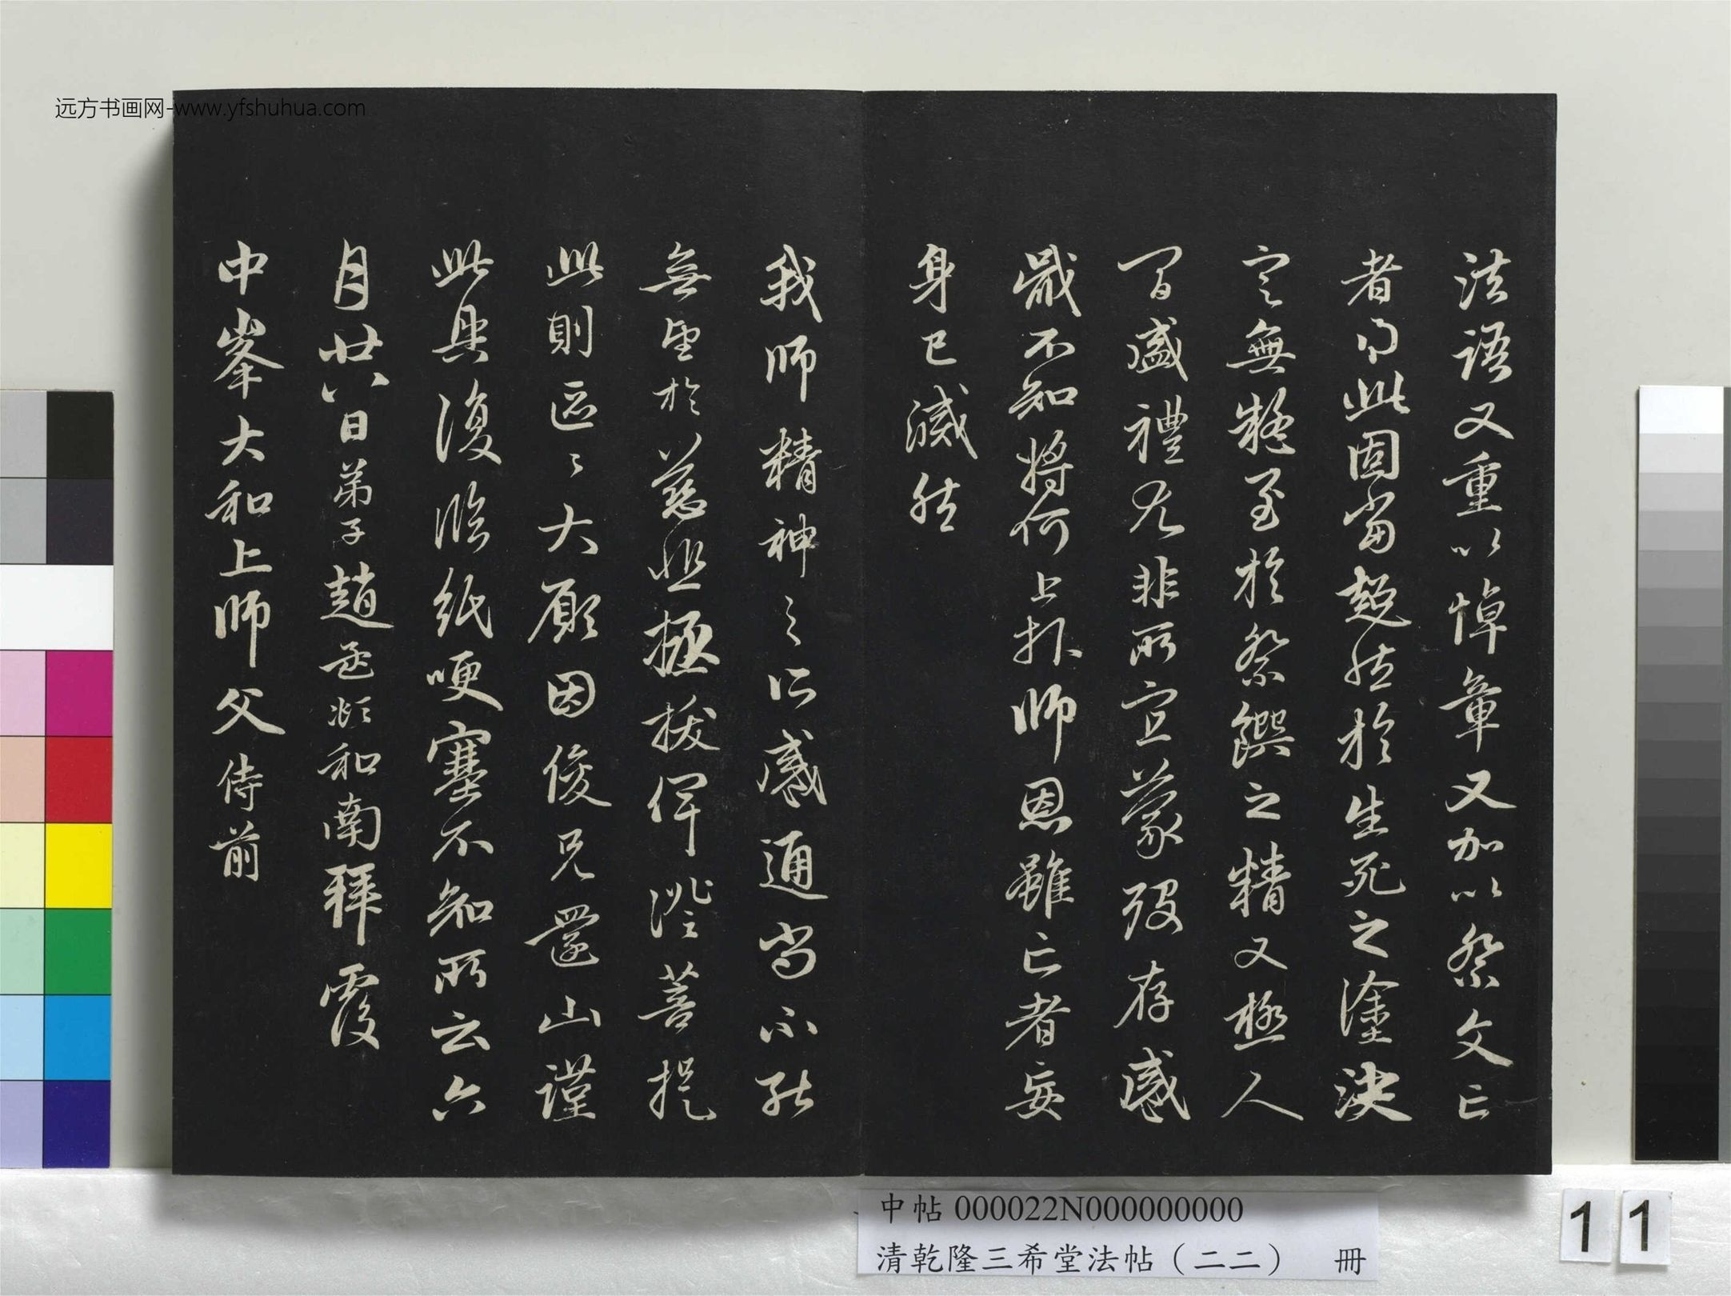 远方书画网-www.yfshuhua.com
法語又重以悼章又加以祭文亡
者得此固當超然於生死之塗決
定無疑至於祭饌之精又極人
間盛禮尤非所宜蒙歿存感
戴不知將何上報師恩雖亡者妄
身已滅然
我師精神之所感通尚不能
無望於慈悲拯拔俾證菩提
此則區〻大願因俊兄還山謹
此具復臨紙哽塞不知所云六
月廿八日弟子趙孟頫和南拜覆
中峯大和上師父侍前
中帖000022N000000000
清乾隆三希堂法帖(二二) 冊
11